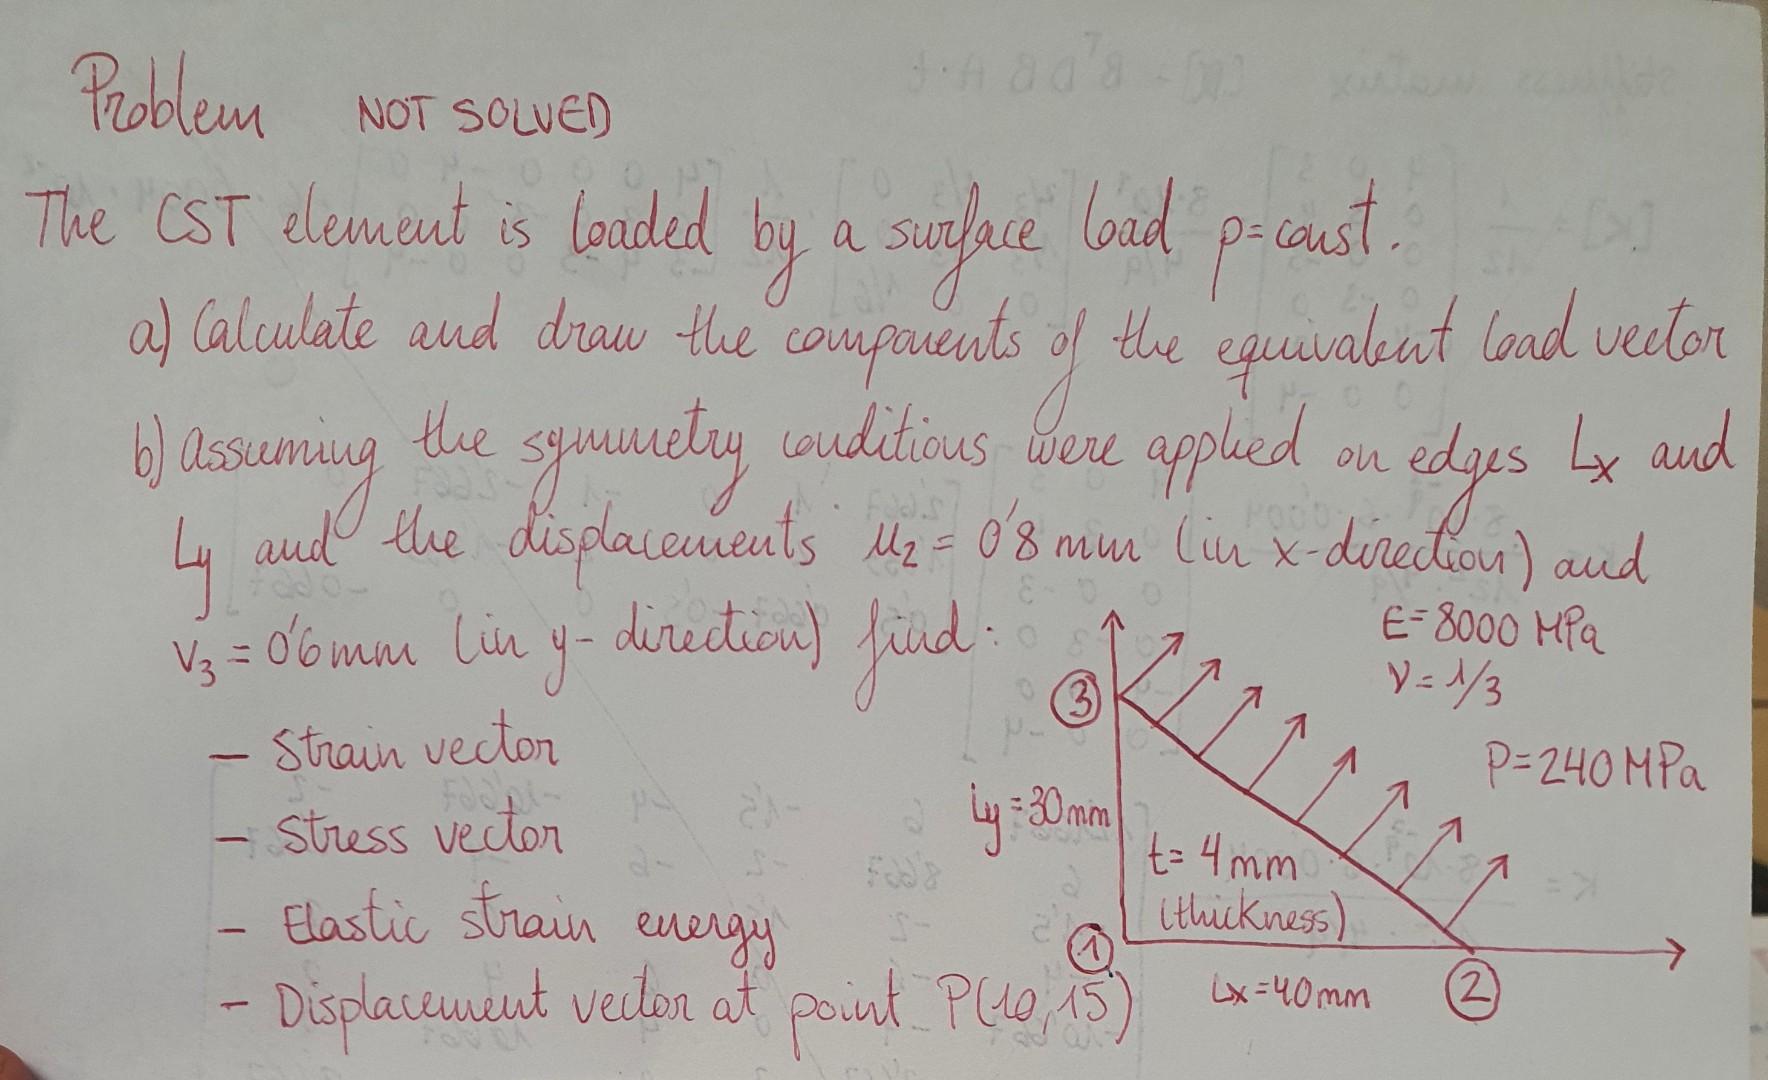 Problem NOT SOLVED
The CST element is loaded by a surface load p=const.
a) Calculate and draw the components of the equivalent load vector
b) assuming the symmetry conditions were applied on edges Lx and
Ly and the displacements u₂ = 0'8 mm (in x-direction) and
v₃ = 0'6 mm (in y-direction) find:
E=8000 MPa
ν=1/3
③
- Strain vector
P=240 MPa
Ly=30mm
- Stress vector
t=4mm
(thickness)
- Elastic strain energy
①
- Displacement vector at point P(10,15)
Lx=40mm
②